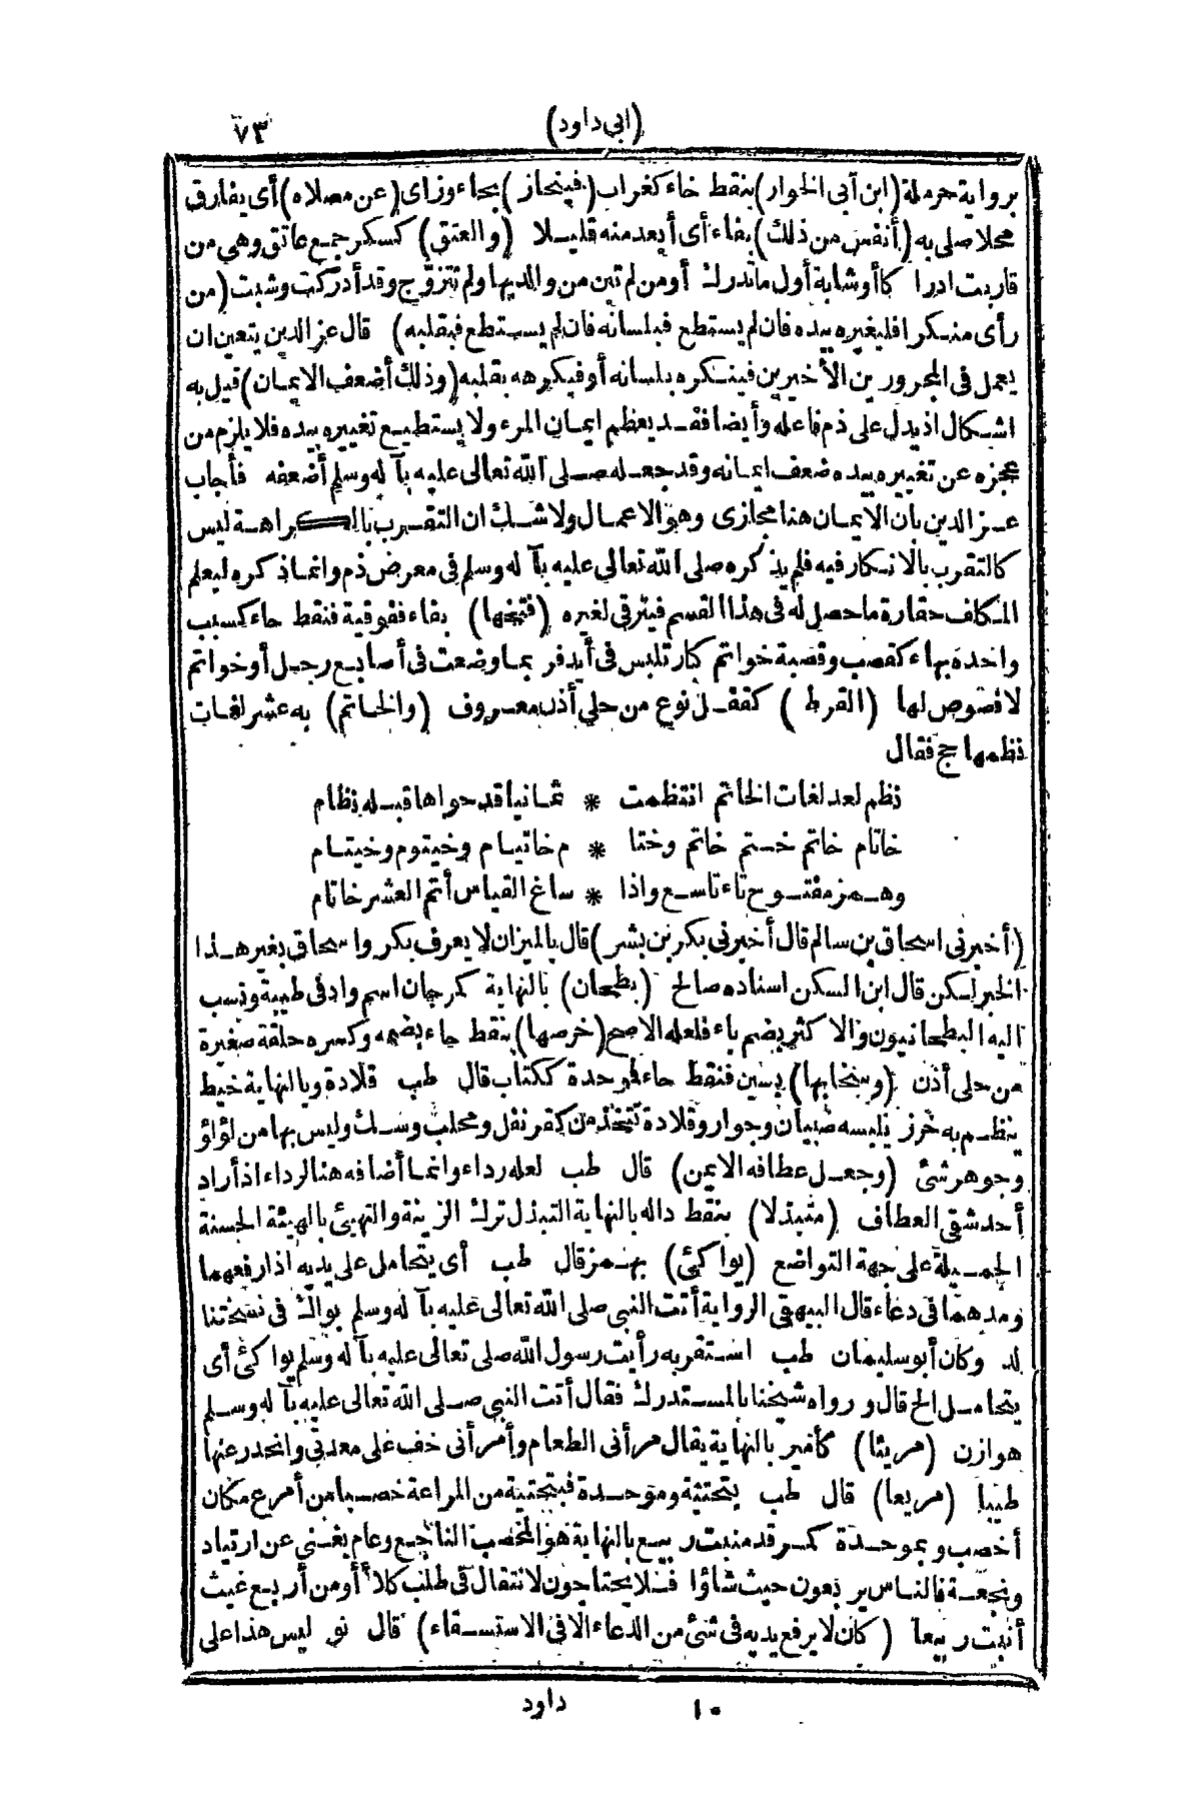 (ابى داود) ٧٣
برواية حرملة (ابن أبى الخوار) بنقط خاء كغراب (فينحاز) بحاء وزاى (عن مصلاه) أى يفارق
محلا صلى به (أنفس من ذلك) بفاء أى أبعد منه قليلا (والعتق) كسكر جمع عاتق وهى من
قاربت ادراكا أو شابة أول ما تدرك أو من لم تبن من والديها ولم تتزوج وقد أدركت وشبت (من
رأى منكرا فليغيره بيده فان لم يستطع فبلسانه فان لم يستطع فبقلبه) قال عز الدين يتعين ان
يعمل فى المجرورين الأخيرين فينكره بلسانه أو فيكرهه بقلبه (وذلك أضعف الايمان) قيل به
اشكال اذ يدل على ذم فاعله وأيضا فقد يعظم ايمان المرء ولا يستطيع تغييره بيده فلا يلزم من
عجزه عن تغييره بيده ضعف ايمانه وقد جعله صلى الله تعالى عليه بآ له وسلم أضعفه فأجاب
عز الدين بان الايمان هنا مجازى وهو الاعمال ولا شك ان التقرب بالكراهة ليس
كالتقرب بالانكار فيه فلم يذكره صلى الله تعالى عليه بآ له وسلم فى معرض ذم وانما ذكره ليعلم
المكلف حقارة ما حصل له فى هذا القسم فيترقى لغيره (فتخها) بفاء ففوقية فنقط حاء كسبب
واحده بهاء كقصب وقصبة خواتم كبار تلبس فى أيد فر بما وضعت فى أصابع رجل أو خواتم
لا فصوص لها (القرط) كقفل نوع من حلى أذن معروف (والخاتم) به عشر لغات
نظمها حج فقال
نظم لعد لغات الخاتم انتظمت * ثمانيا قد حواها قبله نظام
خاتام خاتم ختم خاتم وختا * م خاتيام وخيتوم وخيتام
وهمز مفتوح تاء تاسع واذا * ساغ القياس أتم العشر خاتام
(أخبرنى اسحاق بن سالم قال أخبرنى بكر بن بشر) قال بالميزان لا يعرف بكر واسحاق بغير هذا
الخبر لكن قال ابن السكن اسناده صالح (بطحان) بالنهاية كمرجان اسم واد فى طيبة ونسب
اليه البطحانيون والاكثر بضم باء فلعله الاصح (خرصها) بنقط خاء بضمه وكسره حلقة صغيرة
من حلى أذن (وسخابها) بسين فنقط حاء فموحدة ككتاب قال طب قلادة وبالنهاية خيط
ينظم به خرز يلبسه صبيان وجوار وقلادة تتخذ من كقرنفل ومحلب وسك وليس بها من لؤلؤ
وجوهر شئ (وجعل عطافه الايمن) قال طب لعله رداء وانما أضافه هنا لرداء اذ أراد
أحد شقى العطاف (متبذلا) بنقط داله بالنهاية التبذل ترك الزينة والتهيئ بالهيئة الحسنة
الجميلة على جهة التواضع (يواكئ) بهمز قال طب أى يتحامل على يديه اذا رفعهما
ومدهما فى دعاء قال البيهقى الرواية أتت النبى صلى الله تعالى عليه بآ له وسلم بواك فى نسختنا
لد وكان أبو سليمان طب استقر به رأيت رسول الله صلى تعالى عليه بآ له وسلم يواكئ أى
يتحامل الخ قال ورواه شيخنا بالمستدرك فقال أتت النبى صلى الله تعالى عليه بآ له وسلم
هوازن (مريئا) كأمير بالنهاية يقال مرأنى الطعام وأمرأنى خف على معدتى وانحدر عنها
طيبا (مريعا) قال طب بتحتية وموحدة فبتحتية من المراعة خصبا من أمرع مكان
أخصب وبموحدة كمر قد منبت ربيع بالنهاية هو المخصب الناجع وعام يغنى عن ارتياد
ونجعة فالناس يربعون حيث شاؤا فلا يحتاجون لانتقال فى طلب كلا أو من أربع غيث
أنبت ربيعا (كان لا يرفع يديه فى شئ من الدعاء الا فى الاستسقاء) قال نو ليس هذا على
١٠ داود